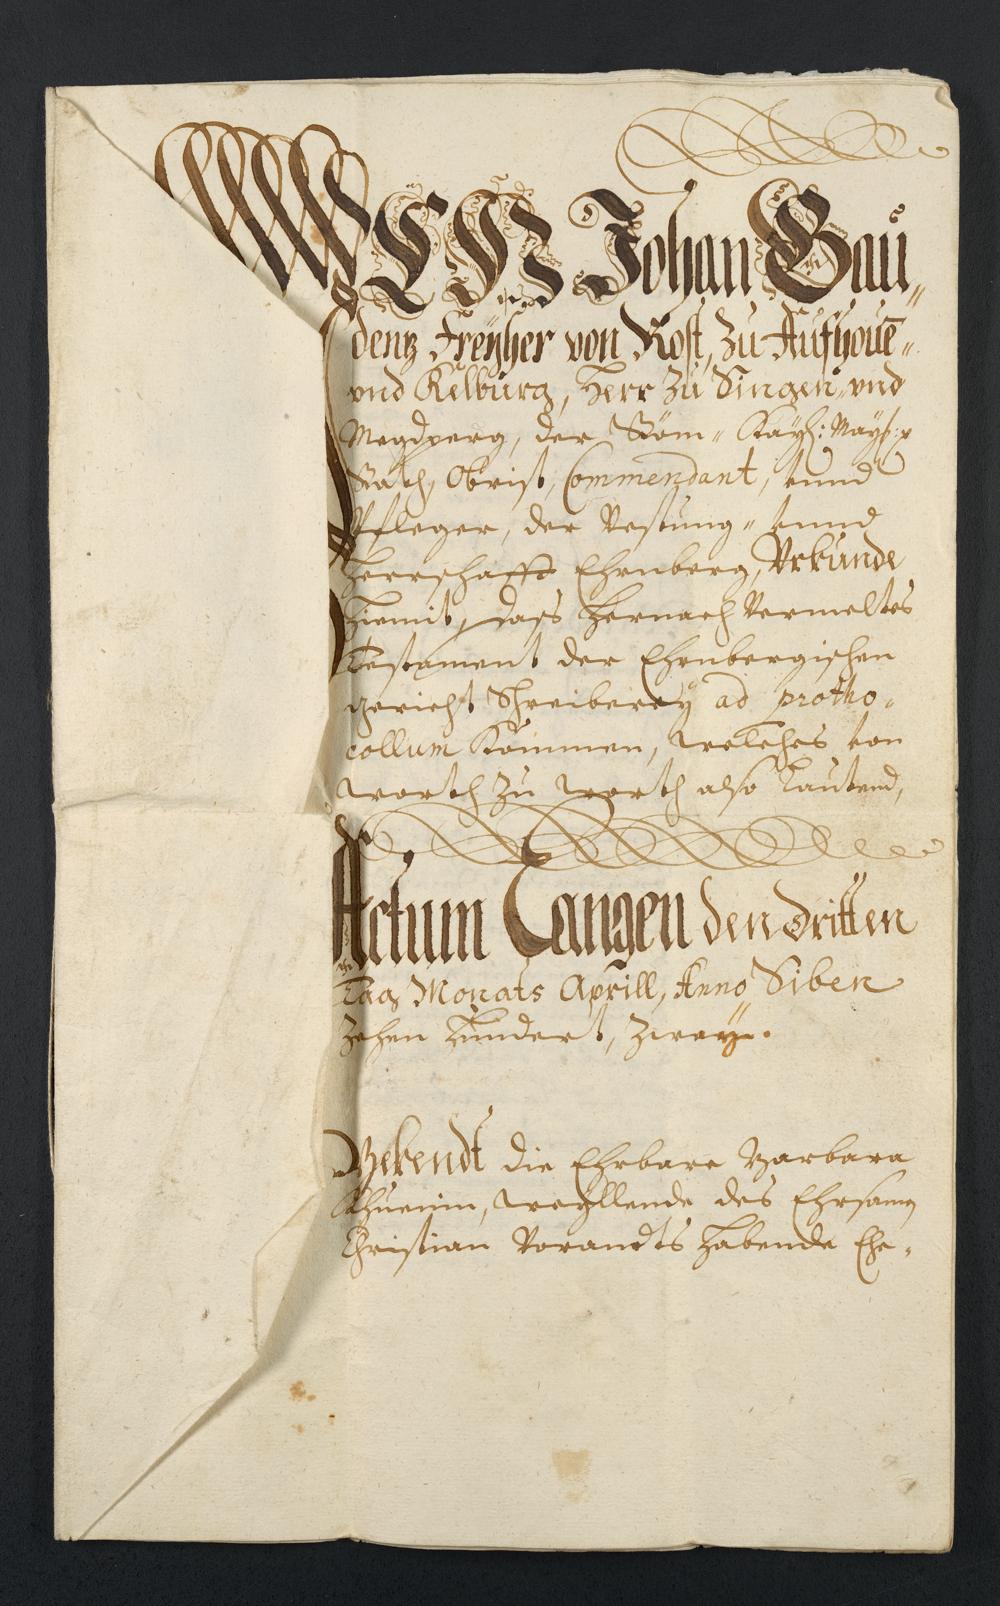 WIR Johan Gau„
dentz Freyher von Rost, zu Aufhouē„
vnd Kelburg, Herr zu Singen„ vnd
Megdperg, der Röm„ Kayß: Mayß:
Rath, Obrist, Commendant, vnnd
Pfleger, der Vestung„ vnnd
Herrschafft Ehrnberg, Vrkunde
hiemit, dass hernach Vermeltes
Testament der Ehrnbergischen
gericht Schreiberey ad protho„
collum Kommen, welches von
worth zu worth also lautend,
Actum Langen den dritten
Tag Monats Aprill, Anno Siben
zehen hundert, zwey.
Bekendt die Ehrbare Barbara
weyllende des Ehrsamen
Christian Vorandts habende Ehe„